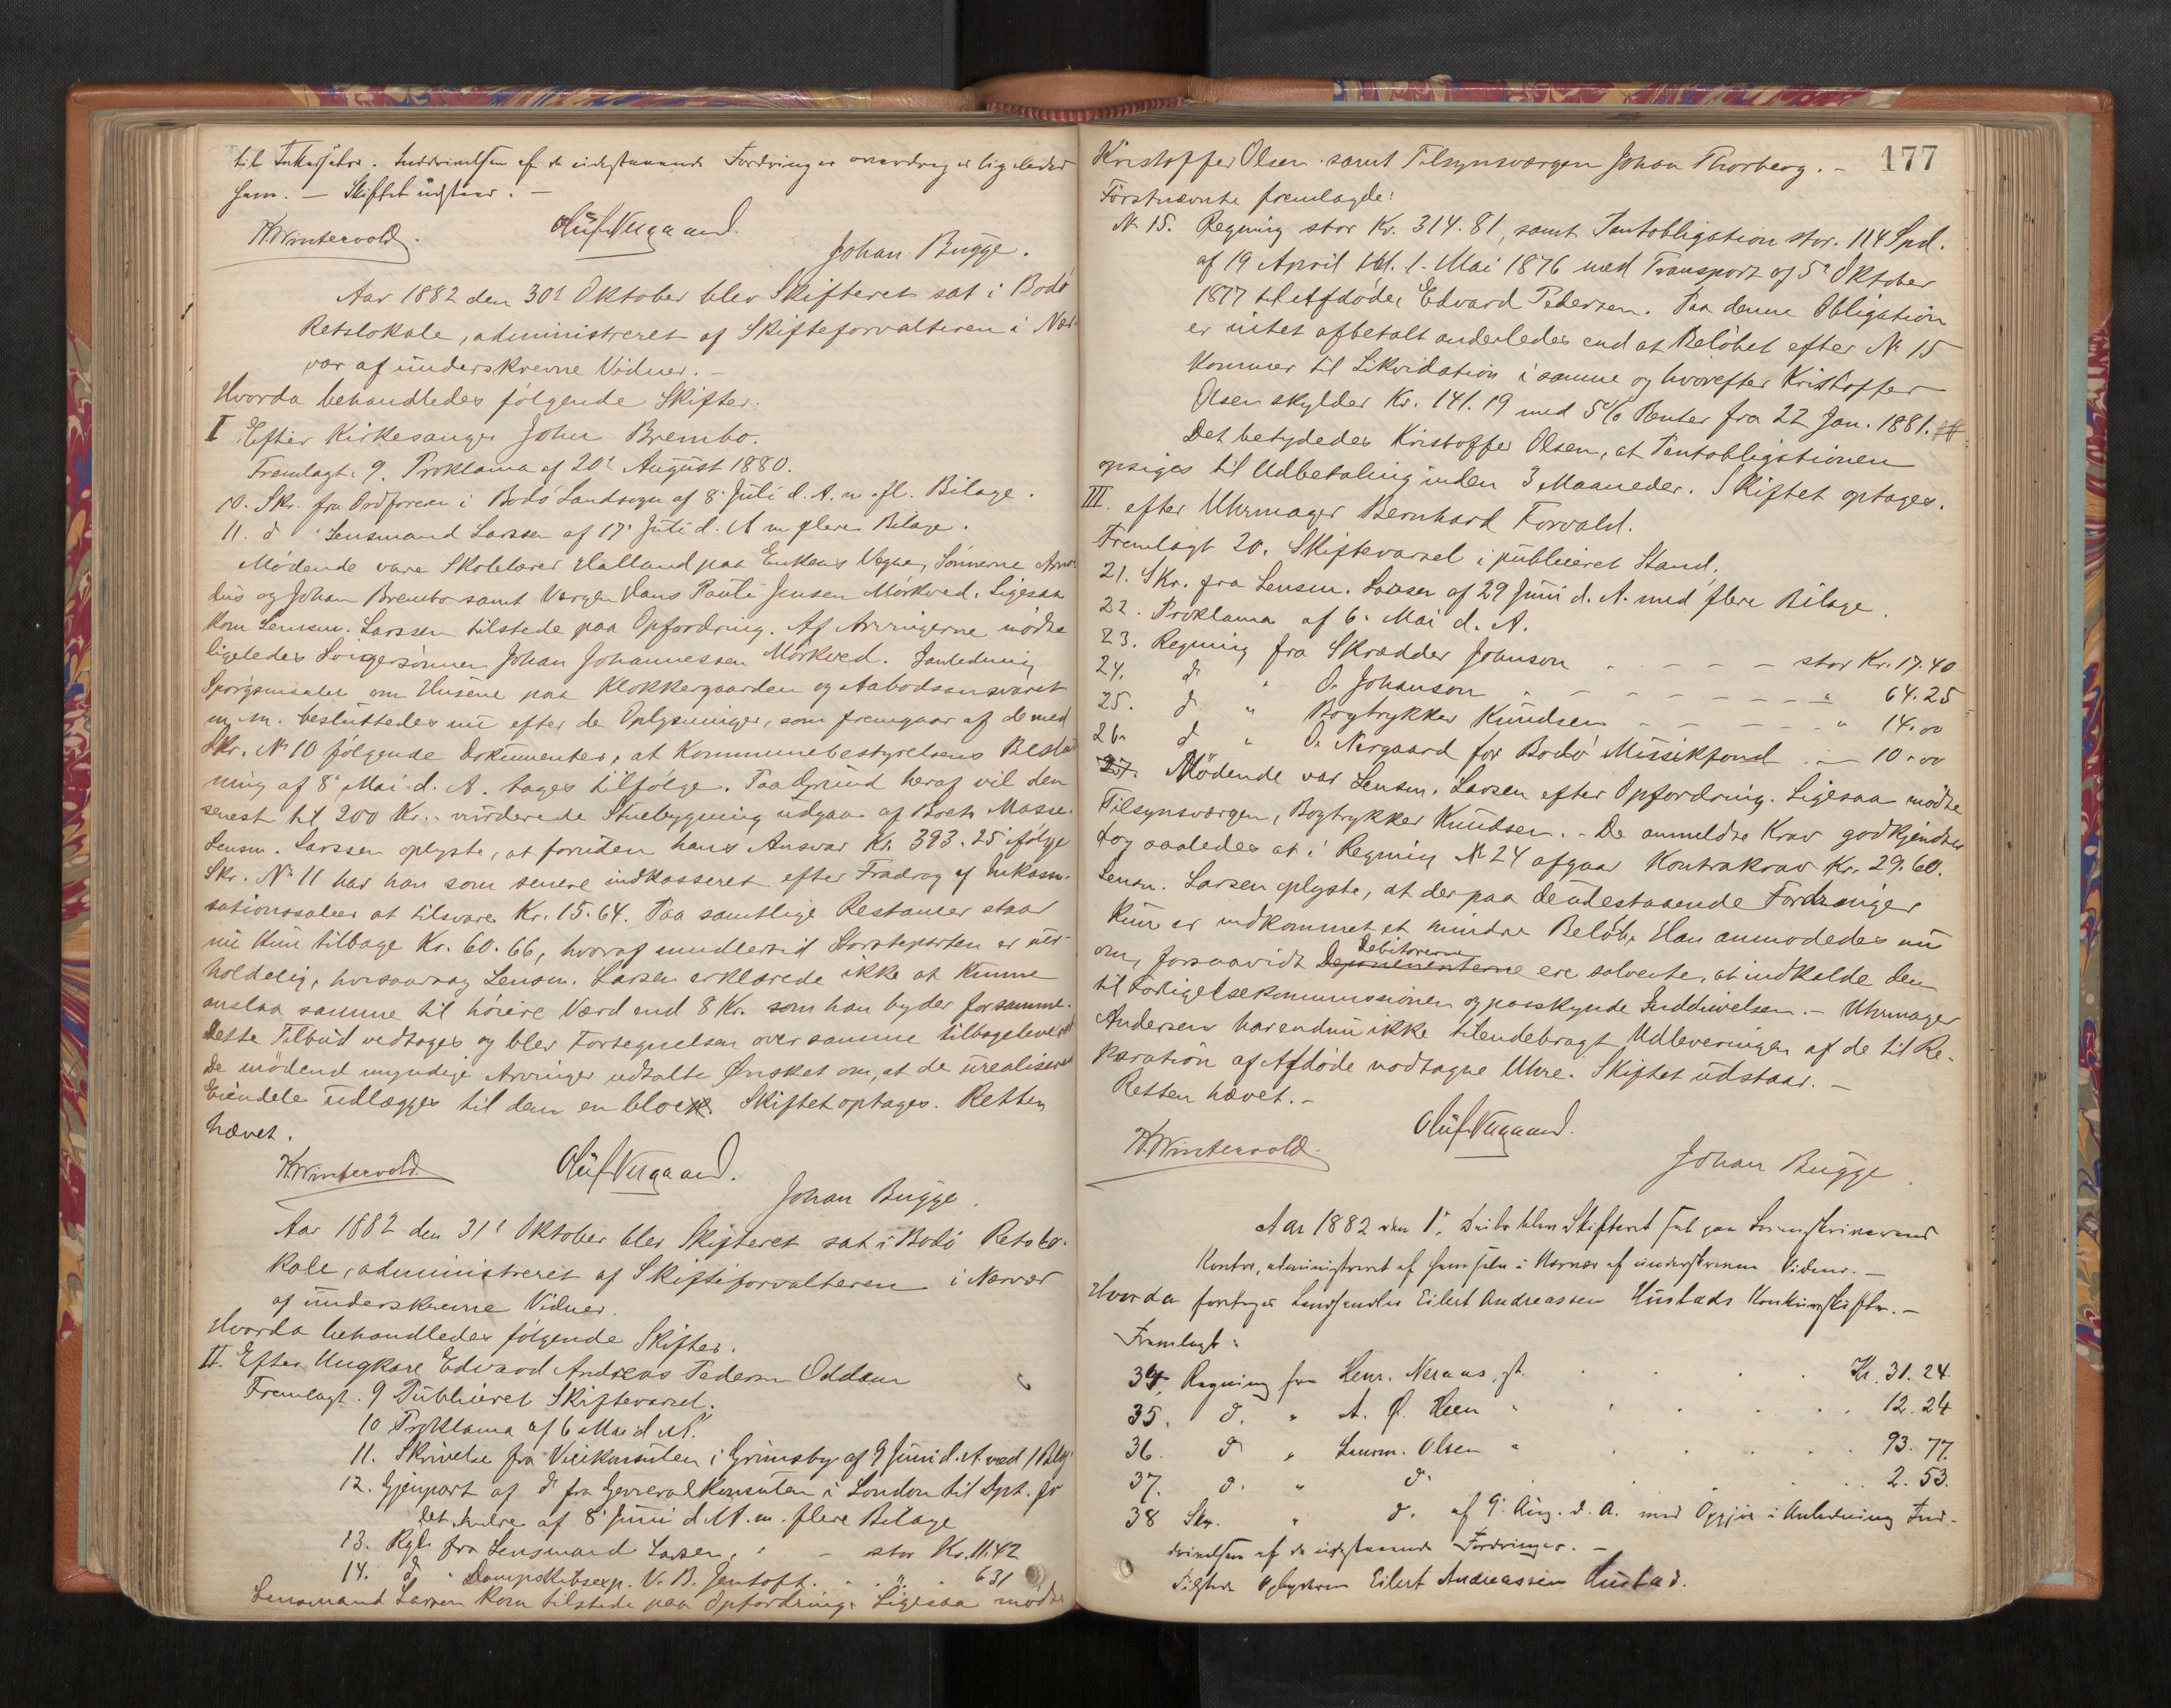 til Inkassator. Inddrivelsen af de udestaaende Fordringer overdrages ligeledes
ham. — Skiftet udstaar. —
W. Wintervold. Oluf Nergaard. Johan Bugge.
Aar 1882 den 30t Oktober blev Skifteret sat i Bodø
Retslokale, administreret af Skifteforvalteren i Nær-
vær af underskrevne Vidner. —
Hvorda behandledes følgende Skifter.
I Efter Kirkesanger John Brembo.
Fremlagt. 9. Proklama af 20t August 1880.
10. Skr. fra Ordføreren i Bodø Landsogn af 8 Juli d. A. m. fl. Bilage.
11. d " Lensmand Larssen af 17 Juli d. A m flere Bilage.
Mødende vare Skolelærer Halland paa Enkens Vegne, Sønnerne
og Johan Brembo samt Vergen Hans Pauli Jensen Mörkved. Ligesaa
kom Lensm. Larssen tilstede paa Opfordring. Af Arvingerne mødte
ligeledes Svigersønnen Johan Johannessen Mörkved. I anledning
Spørgsmaalet om Husene paa Klokkergaarden og Aabodsansvaret
m. m. besluttedes nu efter de Oplysninger, som fremgaar af de med
Skr. No 10 følgende Dokumenter, at Kommunebestyrelsens Beslut
ning af 8 Mai d. A. tages tilfølge. Paa Grund heraf vil den
senest til 200 Kr. vurderede Stuebygning udgaa af Boets Masse.
Lensm. Larssen oplyste, at foruden hans Ansvar Kr. 393.25 ifølge
Skr. No 11 har han som senere indkasseret efter Fradrag af Inkasa-
sationssalær at tilsvare Kr. 15.64. Paa samtlige Restancer staar
nu kun tilbage Kr. 60.66, hvoraf imidlertid Størsteparten er uer-
holdelig, hvorsaavrag Lensm. Larsen erklærede ikke at kunne
anslaa samme til høiere Værd end 8 Kr. som han byder for samme.
Dette Tilbud vedtages og blev Fortegnelsen over samme tilbageleveret
De mødend myndige Arvinger udtalte Ønsket om, at de urealiseret
Eiendele udlægges til dem en bloc. Skiftet optages. Retten
hævet.
W. Wintervold. Oluf Nergaard. Johan Bugge.
Aar 1882 den 31t Oktober blev Skifteret sat i Bodø Retslo-
kale, administreret af Skifteforvalteren i Nærvær
af underskrevne Vidner.
Hvorda behandledes følgende Skifter.
II. Efter Ungkarl Edvard Andreas Pedersen Oddan
Fremlagt. 9 Publiceret Skiftevarsel.
10 Proklama af 6 Mai d. A.
11. Skrivelse fra Vicekonsulen i Grimsby af 9 Juni d. A. med 1 Bilag
12. Gjenpart af d. fra Generalkonsulen i London til Dpt. for
det Indre af 8 Juni d. A. m. flere Bilage
13. Regn. fra Lensmand Larsen. " — stor Kr. 11.42
14. d. " Dampskibsexp. V. B. Jentoft. . . " . 6 31
Lensmand Larsen kom tilstede paa Opfordring. Ligesaa mødte
177
Kristoffer Olsen samt Tilsynsværgen Johan Thorberg. —
Førstnævnte fremlagde:
No 15. Regning stor Kr. 314.81, samt Pantobligation stor. 114 Spd.
af 19 April tgl. 1. Mai 1876 med Transport af 5t Oktober
1877 til Afdøde Edvard Pedersen. Paa denne Obligation
er intet afbetalt anderledes end at Beløbet efter No 15
kommer til Likvidation i samme og hvorefter Kristoffer
Olsen skylder Kr. 141.19 med 5% Renter fra 22 Jan. 1881.
Det betydedes Kristoffer Olsen, at Pantobligationen
opsiges til Udbetaling inden 3 Maaneder. Skiftet optages.
III. efter Uhrmager Bernhard Forvald.
Fremlagt 20. Skiftevarsel i publiceret Stand.
21. Skr. fra Lensm. Larsen af 29 Juni d. A. med flere Bilage.
22. Proklama af 6. Mai d. A.
23. Regning fra Skrædder Johnson . — — — stor Kr. 17.40
24. d " O. Johanson — — — — — " 64.25
25. d " Bogtrykker Knudsen — — — — " 14.00
26. d " O. Nergaard for Bodø Musikfond . — 10.00
27. Mødende var Lensm. Larsen efter Opfordring. Ligesaa mødte
Tilsynsværgen, Bogtrykker Knudsen. — De anmeldte Krav godkjendtes
dog saaledes at i Regning No 24 afgaar Kontrakrav Kr. 29.60.
Lensm. Larsen oplyste, at der paa de udestaaende Fordringer
kun er indkommet et mindre Beløb. Han anmodedes nu
om, forsaavidt Debitorerne ere solvente, at indkalde dem
til Forligelseskommissionen og paaskynde Inddrivelsen. — Uhrmager
Andersen har endnu ikke tilendebragt Udleveringen af de til Re-
paration af Afdøde modtagne Uhre. Skiftet udstaar. —
Retten hævet. —
W. Wintervold. Oluf Nergaard. Johan Bugge
Aar 1882 den 1. blev Skifteret sat paa Sorenskriverens
Kontor, administreret af ham selv i Nærvær af underskrevne Vidner. —
Hvorda foretoges Landhandler Eilert Andreassen Hustads Konkursskifte. —
Fremlagt:
34. Regning fra Henr. Neraas, st. . . . Kr. 31.24.
35. d. " A. Ø. Heen " . . . 12.24
36. d " Lensm. Olsen " . . . 93.77.
37. d. " d. . . . 2.53.
38 Skr. " d. af 9. Aug. d. A. med Opgjør i Anledning Ind-
drivelsen af de udestaaende Fordringer. —
Tilstede Eilert Andreassen Hustad.